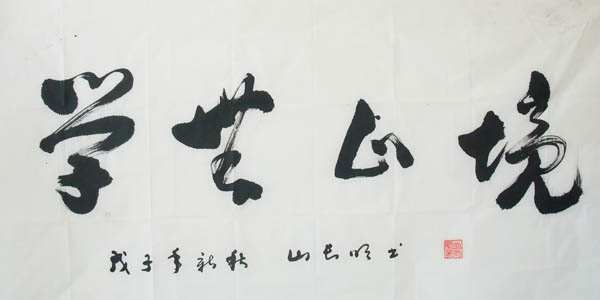 学無止境
戊子年新秋 山长明书